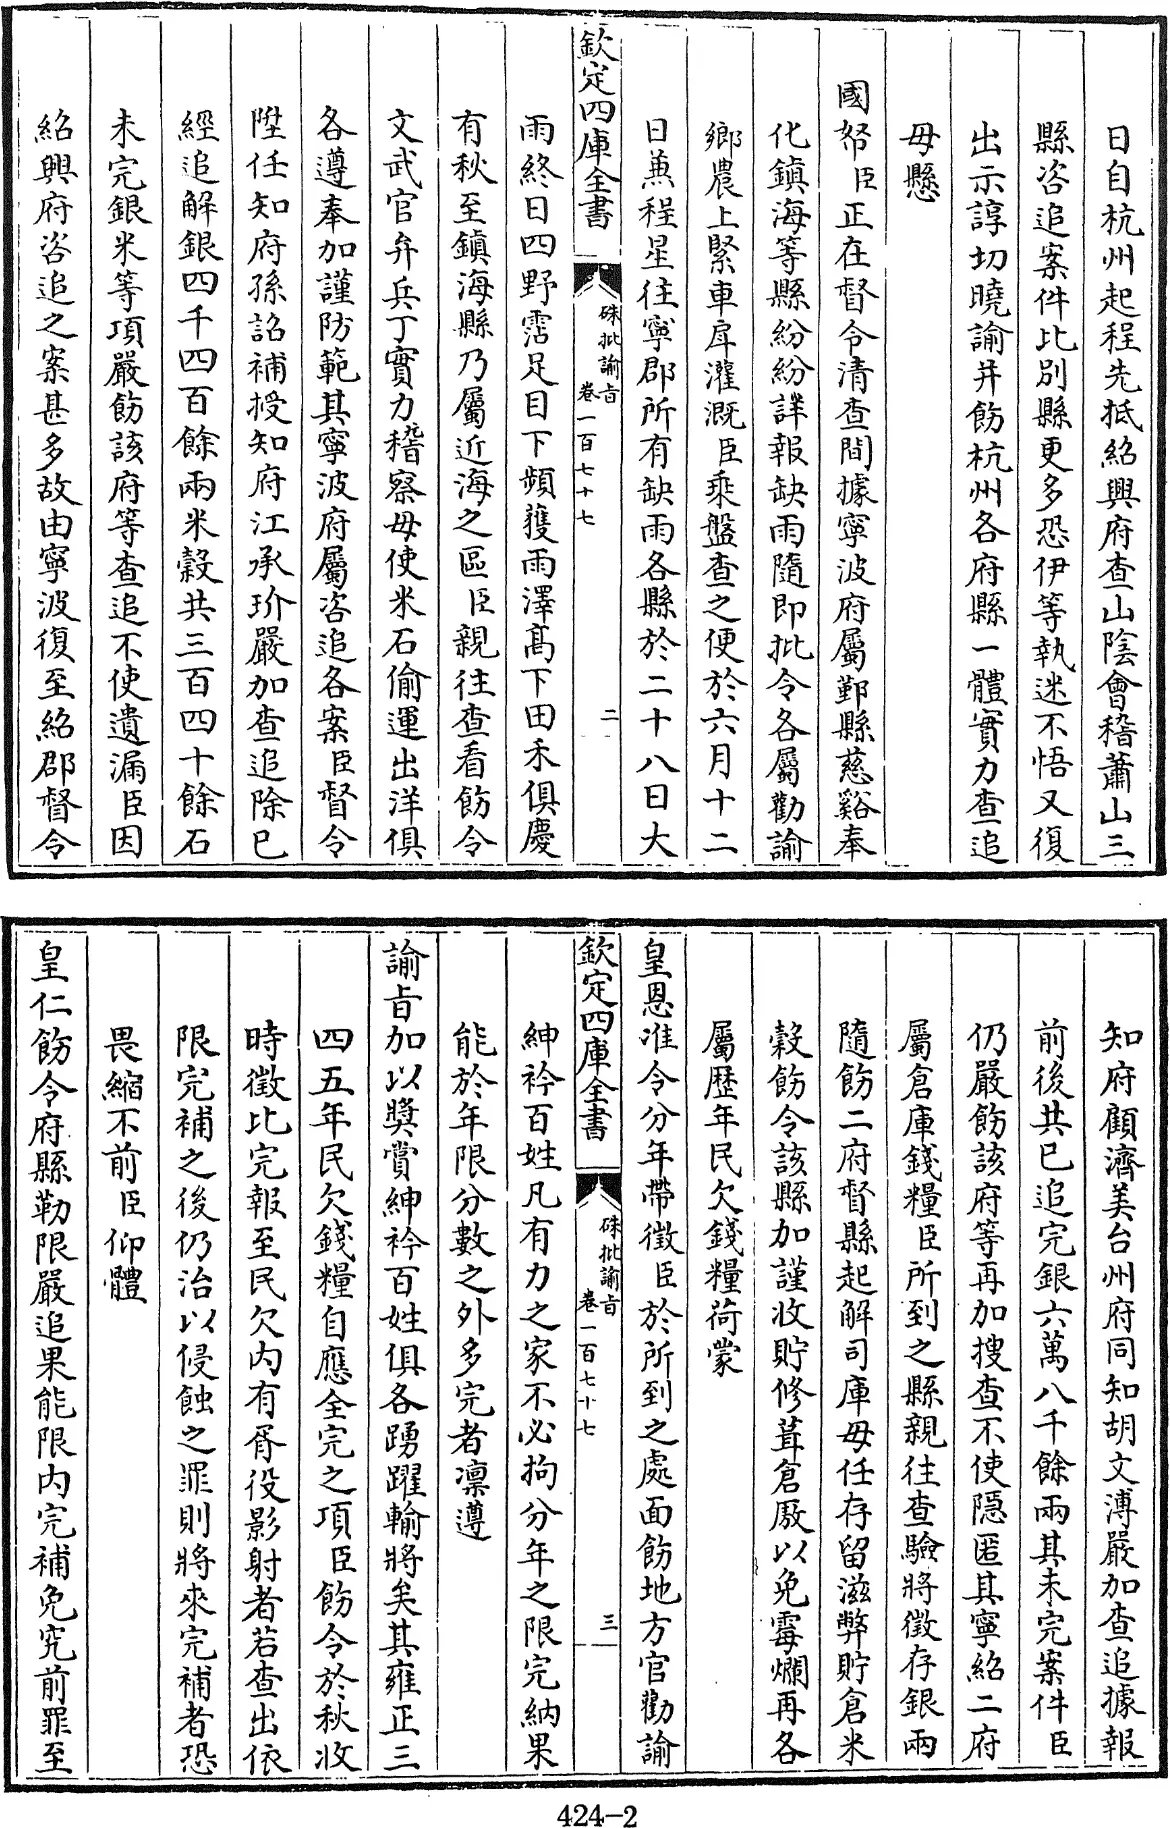 日自杭州起程先抵紹興府查山陰會稽蕭山三
縣咨追案件比別縣更多恐伊等執迷不悟又復
出示諄切曉諭并飭杭州各府縣一體實力查追
毋懸
國帑臣正在督令清查間據寧波府屬鄞縣慈谿奉
化鎮海等縣紛紛詳報缺雨隨即批令各屬勸諭
鄉農上緊車戽灌溉臣乘盤查之便於六月十二
日兼程星往寧郡所有缺雨各縣於二十八日大
欽定四庫全書
硃批諭旨
卷一百七十七
二
雨終日四野霑足目下頻獲雨澤髙下田禾俱慶
有秋至鎮海縣乃屬近海之區臣親往查看飭令
文武官弁兵丁實力稽察毋使米石偷運出洋俱
各遵奉加謹防範其寧波府屬咨追各案臣督令
陞任知府孫詔補授知府江承玠嚴加查追除已
經追解銀四千四百餘兩米糓共三百四十餘石
未完銀米等項嚴飭該府等查追不使遺漏臣因
紹興府咨追之案甚多故由寧波復至紹郡督令
知府顧濟美台州府同知胡文溥嚴加查追據報
前後共已追完銀六萬八千餘兩其未完案件臣
仍嚴飭該府等再加搜查不使隠匿其寧紹二府
屬倉庫錢糧臣所到之縣親往查驗將徵存銀兩
隨飭二府督縣起解司庫毋任存留滋弊貯倉米
糓飭令該縣加謹收貯修葺倉厫以免霉爛再各
屬歴年民欠錢糧荷蒙
皇恩准令分年帶徵臣於所到之處面飭地方官勸諭
欽定四庫全書
硃批諭旨
卷一百七十七
三
紳衿百姓凡有力之家不必拘分年之限完納果
能於年限分數之外多完者凛遵
諭旨加以獎賞紳衿百姓俱各踴躍輸將矣其雍正三
四五年民欠錢糧自應全完之項臣飭令於秋收
時徵比完報至民欠内有胥役影射者若查出依
限完補之後仍治以侵蝕之罪則將來完補者恐
畏縮不前臣仰體
皇仁飭令府縣勒限嚴追果能限内完補免究前罪至
424-2